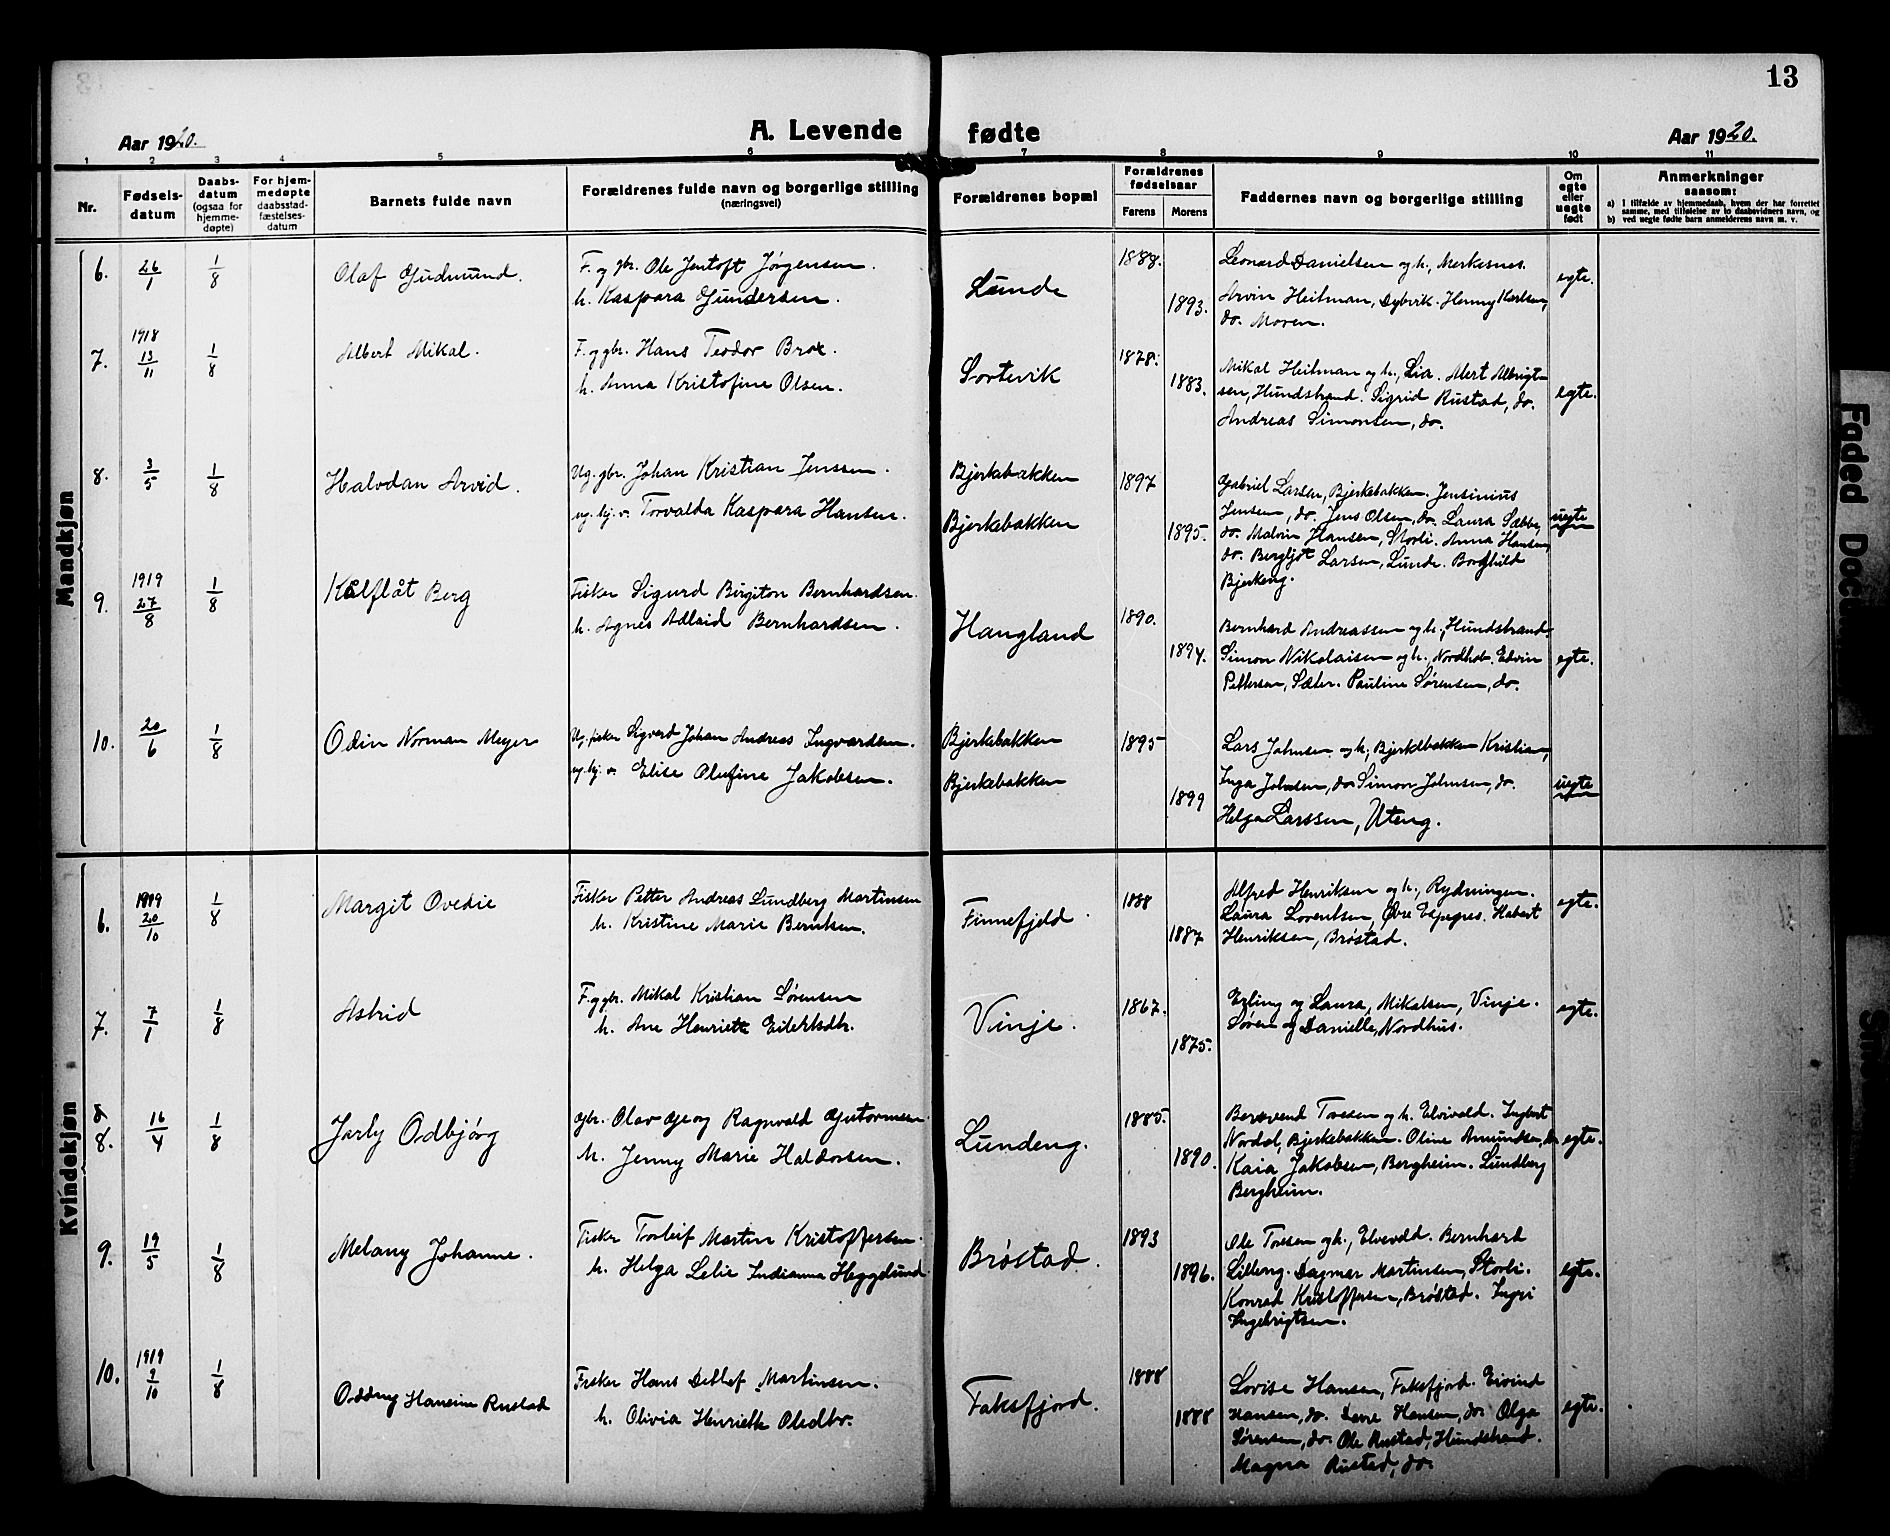 13
A. Levende fødte
Aar 1920.
Aar 1920.
1 2 3 4 5 6 7 8 9 10 11
Nr.
Fødselsdatum
Daabsdatum (ogsaa for hjemmedøpte)
For hjemmedøpte daabsstadfæstelsesdatum
Barnets fulde navn
Forældrenes fulde navn og borgerlige stilling (næringsvei)
Forældrenes bopæl
Forældrenes fødselsaar
Farens Morens
Faddernes navn og borgerlige stilling
Om egte eller uegte født
Anmerkninger
saasom:
a) I tilfælde av hjemmedaab, hvem der har forrettet samme, med tilføielse av to daabsvidners navn, og
b) ved uegte fødte barn anmelderens navn m. v.
Mandkjøn
6. 26/1 1/8 Olaf Gudmund.
F. og gbr. Ole Jentoft Jørgensen.
h. Kaspara Gundersen.
Lunde
1888.
1893.
Leonard Danielsen og h., Merkesnes.
Arvin Heitman, Dybvik. Henny Karlsen,
do. Moren.
egte.
7. 1918 13/11 1/8 Albert Mikal.
F. og gbr. Hans Teodor Brox.
h. Anna Kristofine Olsen.
Sortevik
1878.
1883.
Mikal Heitman og h., Lia. Mert Albrigt-
sen, Hundstrand. Sigrid Rustad, do.
Andreas Simonsen, do.
egte.
8. 3/5 1/8 Halvdan Arvid.
Ug. gbr. Johan Kristian Jenssen.
ug. hj. v. Torvalda Kaspara Hansen.
Bjerkebakken
Bjerkebakken
1897
1895.
Gabriel Larsen, Bjerkebakken. Jensinius
Jensen, do. Jens Olsen, do. Laura Sæbbe,
do. Malvin Hansen, Storli. Anna Hansen,
do. Bergljot Larsen, Lunde. Borghild
Bjerkeng.
uegte
9. 1919 27/8 1/8 Kålflåt Berg
Fisker Sigurd Birgiton Bernhardsen.
h. Agnes Adlaid Bernhardsen.
Haugland
1890.
1894.
Bernhard Andreassen og h., Hundstrand.
Simon Nikolaisen og h., Nordhus. Edvin
Pettersen, Sæter. Pauline Sørensen, do.
egte.
10. 20/6 1/8 Odin Norman Meyer
Ug. fisker Sigvert Johan Andreas Ingvardsen.
ug. hj. v. Elise Olufine Jakobsen.
Bjerkebakken
Bjerkebakken
1895
1899
Lars Johnsen og h., Bjerkebakken Kristian,
Inga Johnsen, do. Simon Johnsen, do.
Helga Larssen, Uteng.
uegte
Kvindekjøn
6. 1919 20/10 1/8 Margit Ovedie
Fisker Petter Andreas Lundberg Martinsen
h. Kristine Marie Berntsen.
Finnefjeld
1888
1887
Alfred Henriksen og h., Rydningen.
Laura Lorentsen, Øvre Espenes. Habert
Henriksen, Brøstad.
egte.
7. 7/1 1/8 Astrid
F. og gbr. Mikal Kristian Sørensen
h. Ane Henriette Eilertsdtr.
Vinje.
1867.
1875.
Erling og Laura, Mikalsen, Vinje.
Søren og Danielle, Nordhus.
egte.
8 8. 16/4 1/8 Jarly Odbjørg
gbr. Olav Georg Ragnvald Gutormsen
h. Jenny Marie Haldorsen.
Lundeng.
1885.
1890.
Toresen og h. Elvevold. Ingbert
Nordal, Bjerkebakken. Oline Amundsen, do
Kaia Jakobsen, Bergheim. Lundberg
Bergheim.
egte.
9. 19/5 1/8 Melany Johanne.
Fisker Torleif Martin Kristoffersen.
h. Helga Lelie Indianna Heggelund
Brøstad.
1893
1896.
Ole Toresen og h., Elvevold. Bernhard
Lilleng. Dagmar Martinsen, Storli.
Konrad Kristoffersen, Brøstad. Ingri
Ingebrigtsen.
egte.
10. 1919 9/10 1/8 Oddny Hansine Rustad
Fisker Hans Detlef Martinsen.
h. Olivia Henriette Olsdtr.
Faksfjord.
1888
1888
Lovise Hansen, Faksfjord. Eivind
Hansen, do. Hansen, do. Olga
Sørensen, do. Ole Rustad, Hundstrand.
Magna Rustad, do.
egte.
Faded Doc